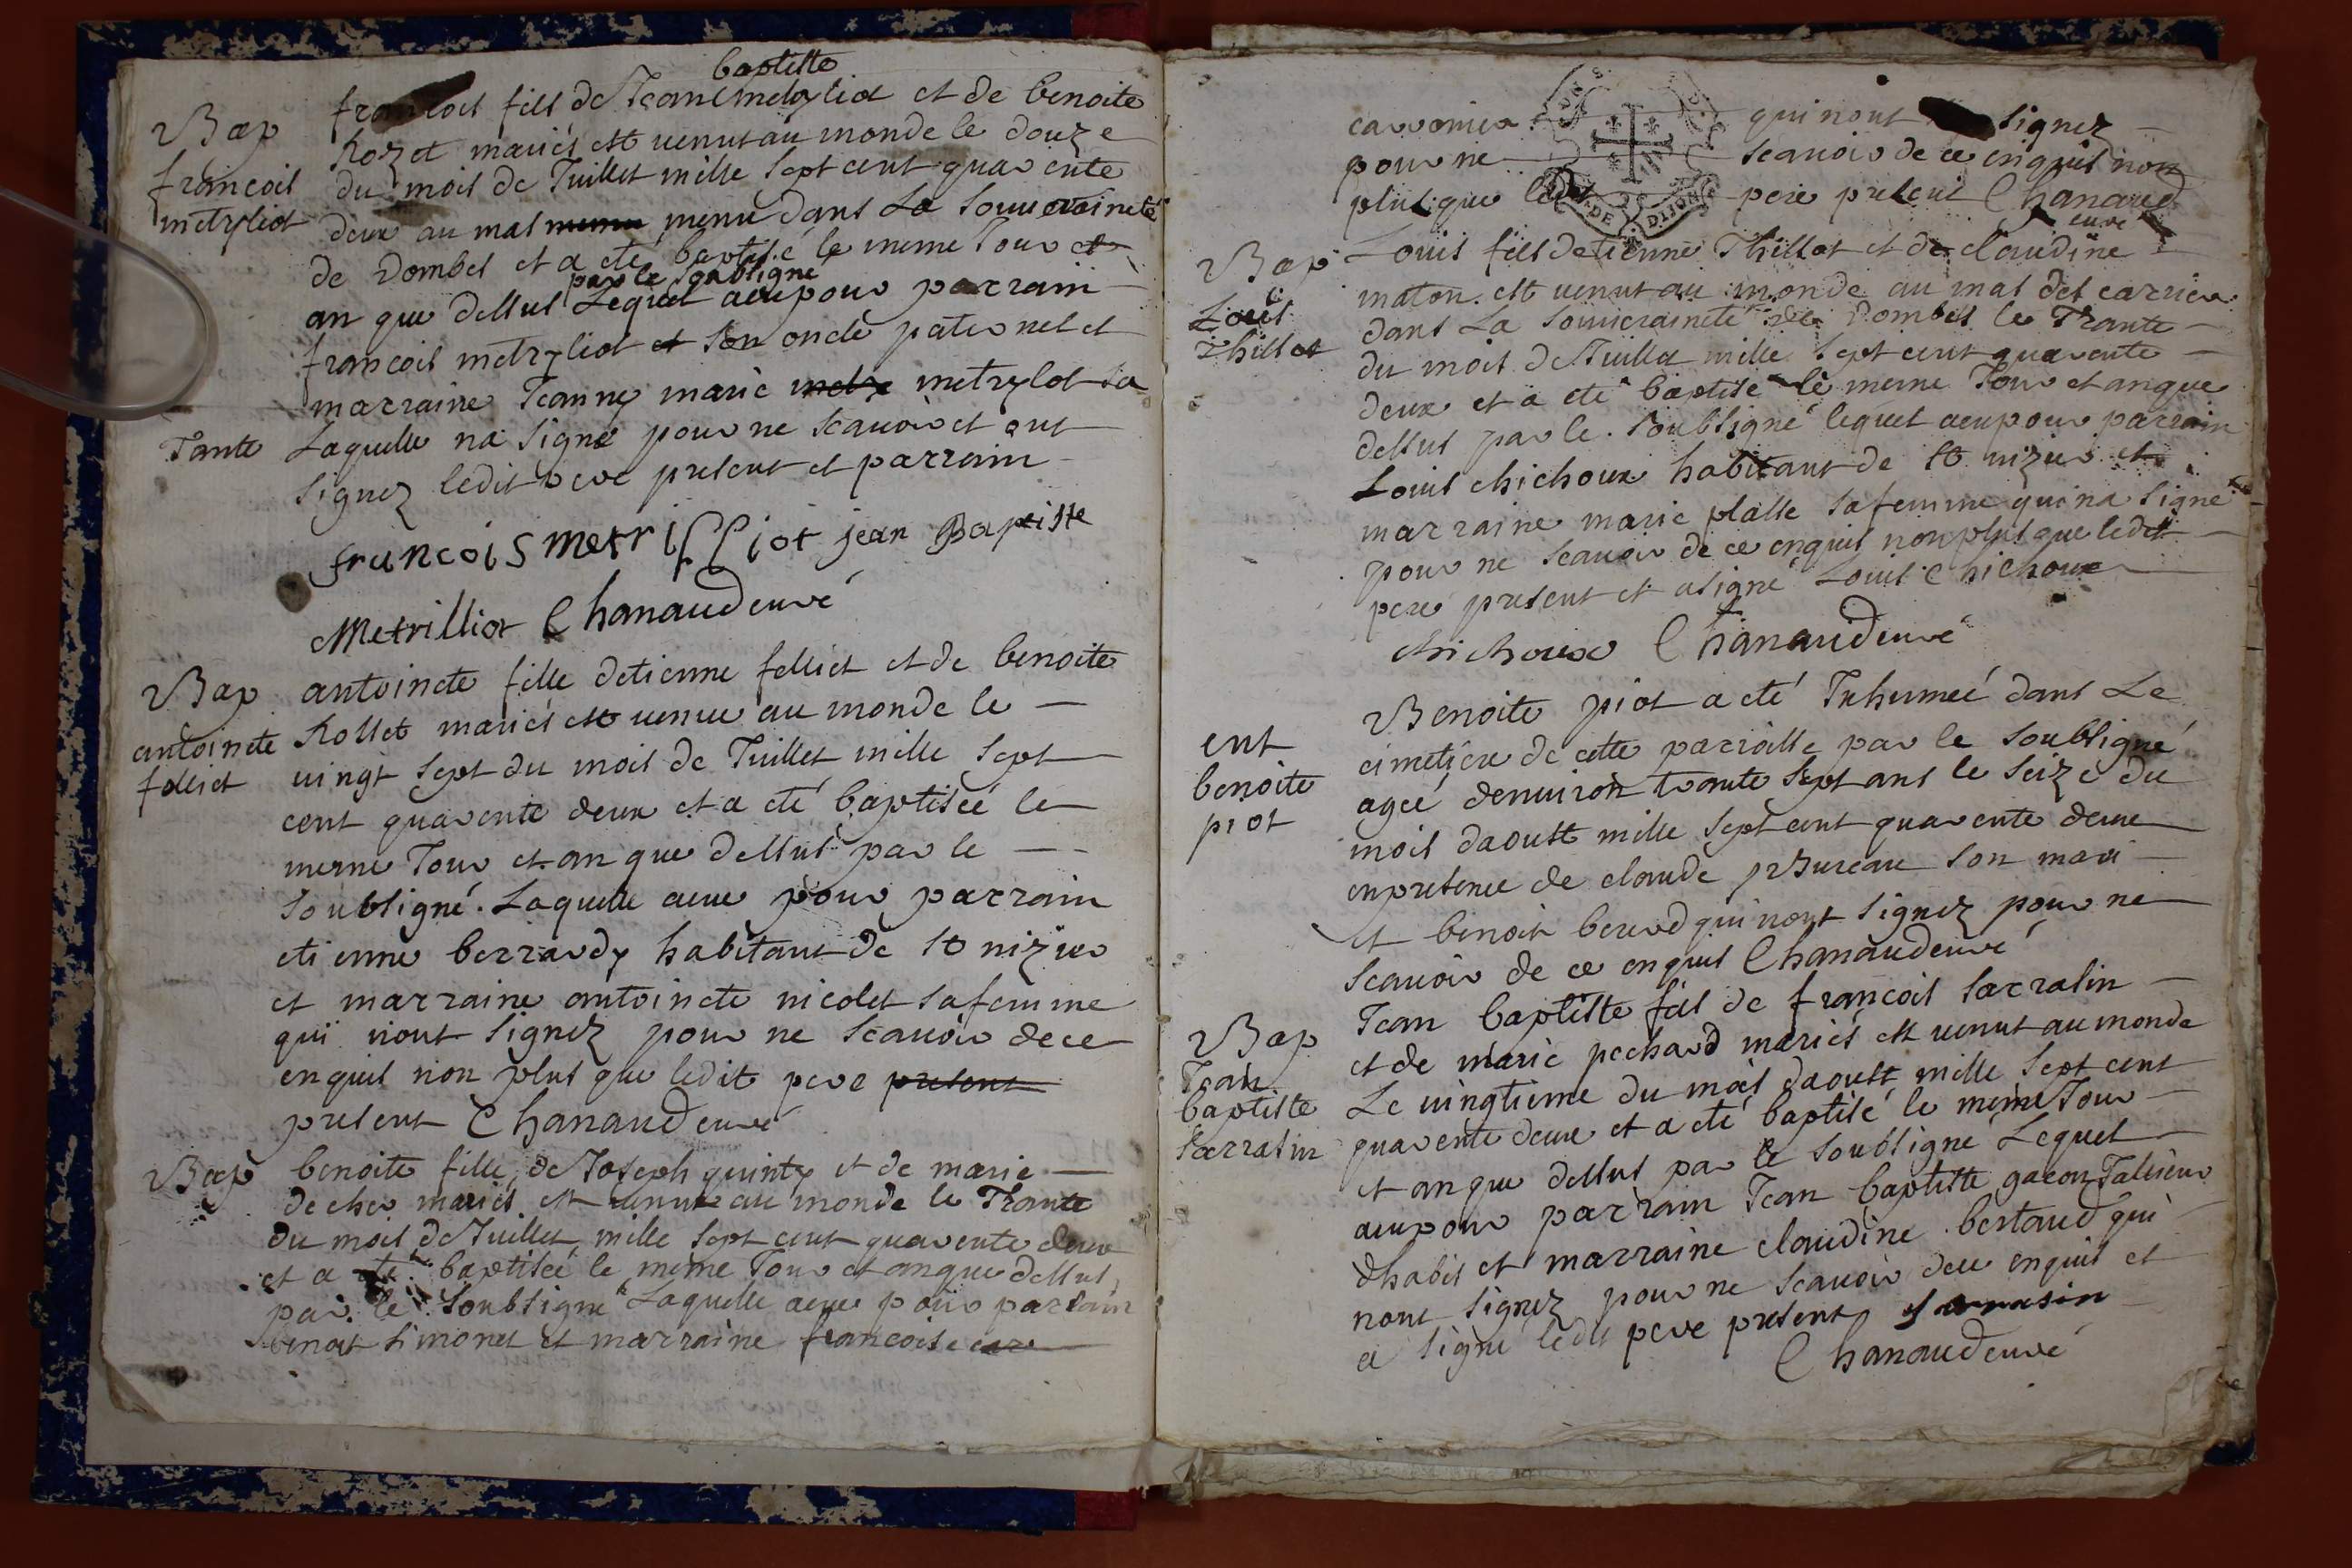 Bap
francois
metryliot
francois fils de Jean baptiste metryliot et de benoite
Rozet mariés est venut au monde le douze
du mois de Juillet mille sept cent quarente
deux au mas menu dans La souveraineté
de Dombes et a eté baptisé le meme Jour et
an que dessus par le soubsigné Lequel aeu pour parrain
francois metryliot et son oncle paternel et
marraine Jeanne marie metrylot sa
Tante Laquelle na signé pour ne scavoir et ont
signez ledit pere present et parrain
francois metrilliot jean Bapeiste
Metrilliot Chanaud curé
Bap
antoinete
felliet
antoinete fille detienne felliet et de benoite
Rollet mariés est venue au monde le
vingt sept du mois de Juillet mille sept
cent quarente deux et a eté baptiseé le
meme Jour et an que dessus par le
soubsigné. Laquelle aeue pour parrain
etienne berrardy habitant de st nizier
et marraine antoinete nicolet sa femme
qui nont signez pour ne scavoir de ce
enquis non plus que ledit pere present
present Chanaud curé
Bap
benoite fille de Joseph quinty et de marie
decher mariés est venue au monde le Trante
du mois de Juillet mille sept cent quarente deux
et a eté baptiseé le meme Jour et an que dessus
par le soubsigné Laquelle aeue pour parrain
benoit simonet et marraine francoise
carronier qui nont signez
pour ne scavoir de ce enquis non
plus que led pere present Chanaud
curé
DE DIJON
Bap
Louis
Thillot
Louis fils detienne Thillot et de claudine
maton est venut au monde au mas des carrier
dans La souveraineté de Dombes le Trante
du mois de Juillet mille sept cent quarente
deux et a eté baptisé le meme Jour et an que
dessus par le soubsigné lequel aeu pour parrain
Louis chichoux habitant de st nizier et
marraine marie plasse sa femme qui na signé
pour ne scavoir de ce enquis non plus que ledit
pere present et a signé Louis Chichoux
chichoux Chanaud curé
ent
benoite
piot
Benoite piot a eté Inhumeé dans Le
cimetiere de cette parroisse par le soubsigné
ageé denviron trante sept ans le seize du
mois daoust mille sept cent quarente deux
en presence de claude Bureau son mari
et benoit bererd qui nont signez pour ne
scavoir de ce enquis Chanaud curé
Bap
Jean
baptiste
sarrasin
Jean baptiste fils de francois sarrasin
et de marie pechard mariés est venut au monde
Le vingtieme du mois daoust mille sept cent
quarente deux et a eté baptisé le meme Jour
et an que dessus par le soubsigné Lequel
aeu pour parrain Jean baptiste gacon Tailieur
dhabis et marraine claudine bertaud qui
nont signez pour ne scavoir de ce enquis et
a signé ledit pere present sarrasin
Chanaud curé